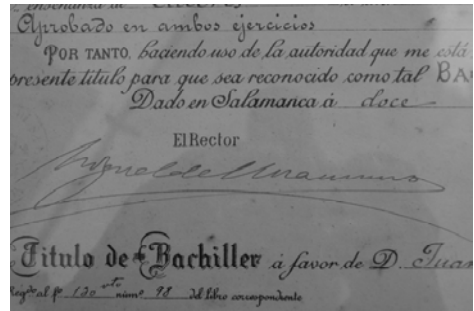 enseñanza de
Aprobado en ambos ejercicios
POR TANTO, haciendo uso de la autoridad que me está
presente titulo para que sea reconocido como tal BA
Dado en Salamanca á doce
El Rector
Miguel de Unamuno
Titulo de Bachiller á favor de D. Juan
al fº 130 núm.º 98 del libro correspondiente